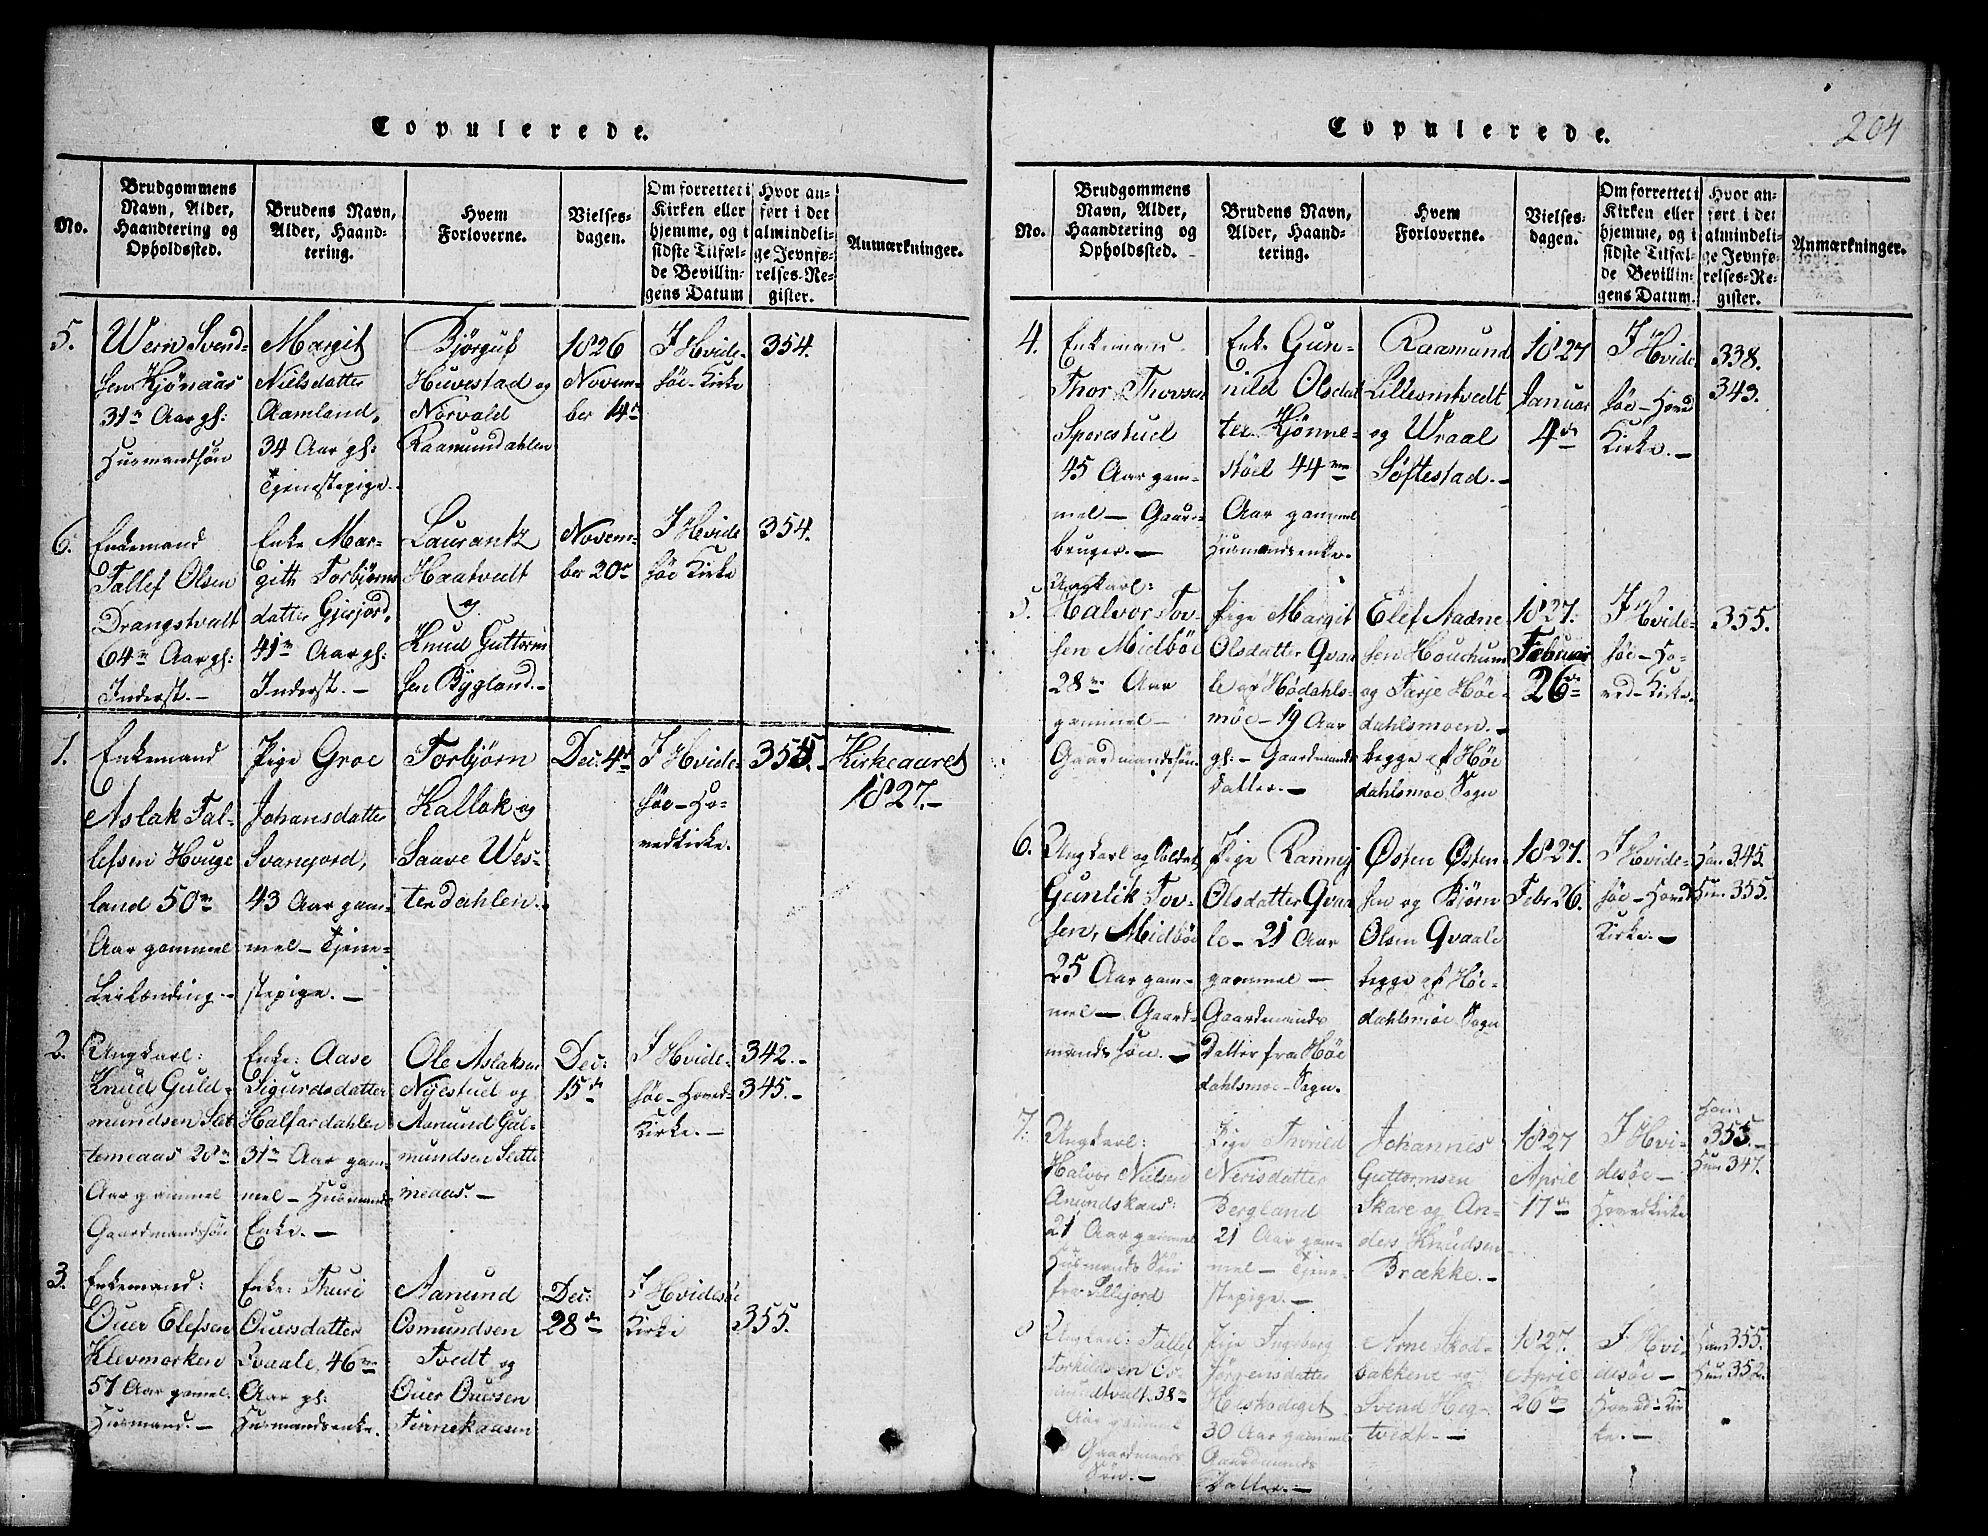 Copulerede.
No.
Brudgommens
Navn, Alder,
Haandtering og
Opholdssted.
Brudens Navn,
Alder, Haand-
tering.
Hvem
Forloverne.
Vielses-
dagen.
Om forrettet i
Kirken eller
hjemme, og i
sidste Tilfæl-
de Bevillin-
gens Datum
Hvor an-
ført i det
almindeli-
ge Jevnfø-
relses-Re-
gister.
Anmærkninger.
5.
Wern Svend-
sen Kjønaas
31 Aar gl:
Huusmandssøn
Margit
Nielsdatter
Aamland,
34 Aar gl:
Tjenestepige.
Bjørguf
Huvestad og
Norvald
Raamundahlen
1826
Novem-
ber 14de
I Hvide-
søe-Kirke
354.
6.
Enkemand
Tallef Olsen
Drangstvedt
64 Aar gl:
Inderst.-
Enke Mar-
gith Torbjørns
datter Gjersjord,
41 Aar gl:
Inderst.-
Laurantz
Haatvedt
og
Knud Guttorm
sen Bygland.-
Novem-
ber 20de
I Hvide
søe Kirke
354.
1.
Enkemand
Aslak Tal-
lefsen Houge
land 50
Aar gammel
Leilænding-
Pige Groe
Johansdatter
Svanejord,
43 Aar gam-
mel- Tjene-
stepige.-
Torbjørn
Kallak og
Saave Wes-
terdahlen.
Dec: 4de
I Hvide-
søe-Ho-
vedkirke.
355.
Kirkeaaret
1827.-
2.
Ungkarl:
Knud Guld-
mundsen Slet
temeaas 28
Aar gammel
Gaardmandssøn
Enke: Aase
Sigurdsdatter
Halfardahlen
31 Aar gam-
mel- Huusmands
Enke.-
Ole Aslaksen
Nyestuel og
Aanund Gul-
mundsen Slette
meaas.-
Dec:
15de
I Hvide-
søe-Hoved-
Kirke.-
342.-
345.-
3.
Enkemand:
Ouer Elefsen
Klevmarken
57 Aar gamel.
Huusmand.-
Enke: Thuri
Ouersdatter
Qvaale, 46
Aar gl:
Huusmandsenke.
Aanund
Osmundsen
Tvedt og
Ouer Ouersen
Finnekaasen
Dec:
28de
I Hvidesøe
Kirke
355.
Copulerede.
204
No.
Brudgommens
Navn, Alder,
Haandtering og
Opholdssted.
Brudens Navn,
Alder, Haand-
tering.
Hvem
Forloverne.
Vielses-
dagen.
Om forrettet i
Kirken eller
hjemme, og i
sidste Tilfæl-
de Bevillin-
gens Datum.
Hvor an-
ført i det
almindeli-
ge Jevnfø-
relses-Re-
gister.
Anmærkninger.
4.
Enkemand
Thor Thorsen
Sporestuel
45 Aar gam-
mel- Gaard-
bruger.-
Enke Gun-
nild Olsdat
ter Kjønne-
støel 44
Aar gammel
Huusmandsenke.
Raamund
Lillesmtvedt
og Wraal
Søftestad.-
1827
Januar
4de
I Hvide
søe-Hoved
Kirke.-
338.
343.
5.
Ungkarl:
Halvor Tov-
sen Midbøe
28 Aar
gammel-
Gaardmandssøn.
Pige Margit
Olsdatter Qvaa
le af Hødahls-
møe-19 Aar
gl:- Gaardmands
Datter.-
Elef Aadne
sen Houchum
og Tarje Høe-
dahlsmoen.-
begge af Høe
dahlsmoe Sogn
1827.
Februar
26de
I Hvide-
søe-Ho-
ved-Kirke.
355.
6.
Ungkarl og Soldat,
Gunlik Tov-
sen, Midbøe
25 Aar gam-
mel- Gaard-
mandssøn.-
Pige Ranney
Olsdatter Qvaa
le- 21 Aar
gammel-
Gaardmands
Datter fra Høe
dahlsmoe-Sogn.
Østen Østen-
sen og Bjørn
Olsen Qvaale
begge af Høe-
dahlsmøe Sogn
1827.
Febr 26.
I Hvide-
søe-Hoved
Kirke.-
Han 345.
Hun 355.
7.
Ungkarl:
Halvor Nielsen
Anundskaas:
21 Aar gammel
Huusmands Søn
fra Sillejord
Pige Thorild
Nerisdatter
Bergland
21 Aar gam-
mel- Tjene-
stepige.-
Johannes
Guttormsen
Skare og An-
ders Knudsen
Brække.-
1827
April
17de
I Hvi-
desøe-
Hovedkirke
Han
355.-
Hun 347.
8
Ungkarl: Tallef
Torkildsen Os-
mundtvedt. 38
Aar gammel
Gaardmands
Søn.-
Pige Ingeborg
Jørgensdatter
Heskodeget
30 Aar gammel
Gaardmands
Datter.-
Arne Skod-
bakkene og
Svend Heg-
tvedt.-
1827.
April
26de
I Hvi-
desøe-
Hoved-Kir
ke.-
Han 355.
Hun 352.